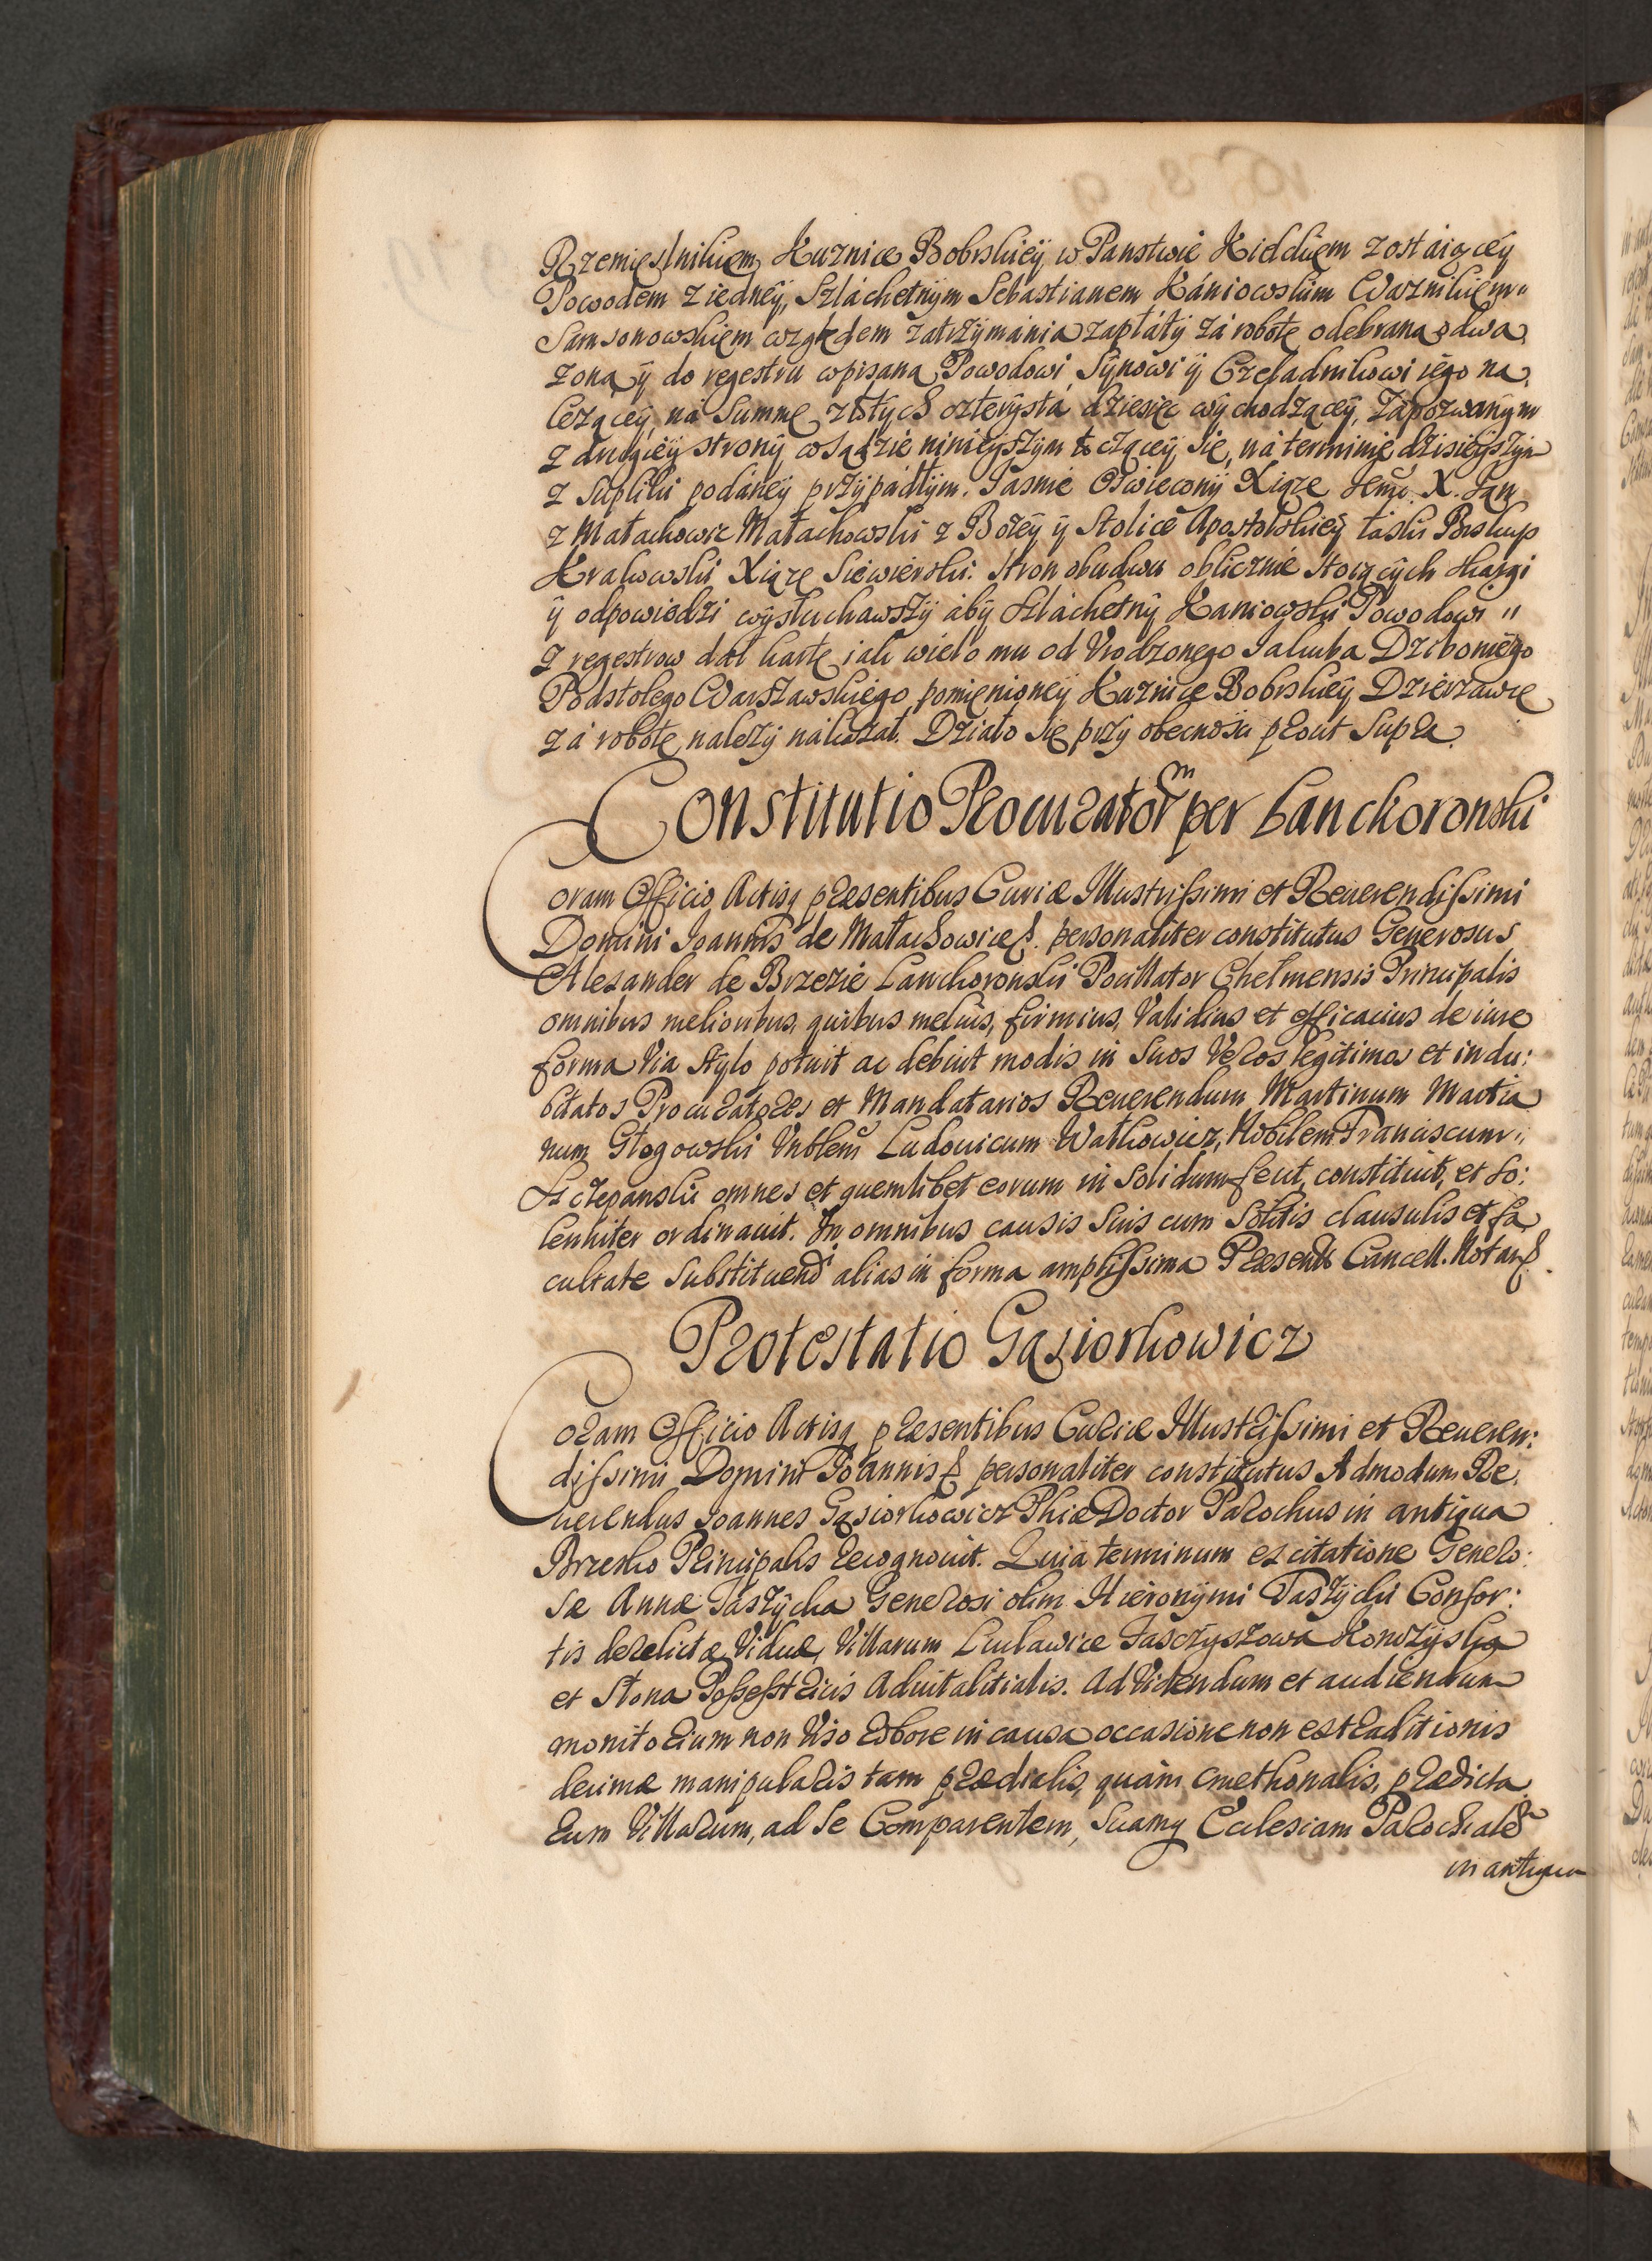 Rzemięslnikiem Kuznice Bobrskiey w Panstwie Kieldckiem zostaiącey
Powodem z iedney, Szláchetnym Sebastianem Kániowskim Warznikiem
Samsonowskiem względem zatrzymánia zapłáty zá robotę odebraną odwa
żoną y do regestru wpisaną Powodowi Synowi y Czeladnikowi iego na
leżącey, ná Summę złotych czterysta dziesięc wychodzącey, Zapozwanym
z drugiey strony w Sądzie ninieyszym toczącey się, ná terminie dzisieyszym
z Supliki podáney przypádłym. Jasnie Oswiecony Xiąże Jemć. X. Jan
z Małachowic Małachowski z Bożey y Stolice Apostolskiey łaski Biskup
Krakowski Xiąże Siewierski. Stron obudwu oblicznie stoiących skargi
y odpowiedzi wysłuchawszy áby Szláchetny Kaniowski Powodowi
z regestrow dał kartę iak wielo mu od Vrodzonego Jakuba Dziboniego
Podstolego Warszawskiego pomienioney Kuznice Bobrskiey Dzierżawcę
zá robotę należy nákazał. Działo się przy obecnosci prout Supra.
Constitutio Procuratorm per Lanckoronski
Coram Officio Actisq præsentibus Curiæ Illustrissimi et Reuerendissimi
Domini Joannis de Małachowice &. personaliter constitutus Generosus
Alexander de Brzezie Lanckoronski Pocillator Chelmensis Principalis
omnibus melioribus, quibus melius, firmius, Validius et efficacius de iure
forma Via Stylo potuit ac debuit modis, in Suos Veros legitimos et indu:
bitatos Procuratores et Mandatarios Reuerendum Martinum Martia
num Głogowski Vnblem Ludouicum Watkowicz, Nobilem Franciscum
Sczepanski omnes et quemlibet eorum in Solidum fecit, constituit, et so:
lenniter ordinauit. In omnibus causis Suis cum Solitis clausulis et fa
cultate Substituendi alias in forma amplissima Præsente Cancell. Notar &.
Protestatio Gąsiorkowicz
Coram Officio Actisq præsentibus Curiæ Illustrissimi et Reueren:
dissimi Domini Joannis & personaliter constitutus Admodum Re
uerendus Joannes Gąsiorkowicz Phiæ Doctor Parochus in antiqua
Brzesko Principalis recognouit. Quia terminum ex citatione Genero:
sæ Annæ Taszycka Generosi olim Hieronymi Taszycki Consor:
tis derelictæ Viduæ, Villarum Luclawice Fascżyszowa Konczyska
et Stona Possestricis Aduitalitialis. Ad Videndum et audiendum
monitorium non Viso robore in causa occasione non extraditionis
decimæ manipularis tam prædialis, quàm cmethonalis, prædicta
rum Villarum, ad Se Comparentem, Suamq Ecclesiam Parochialem
in antiqua